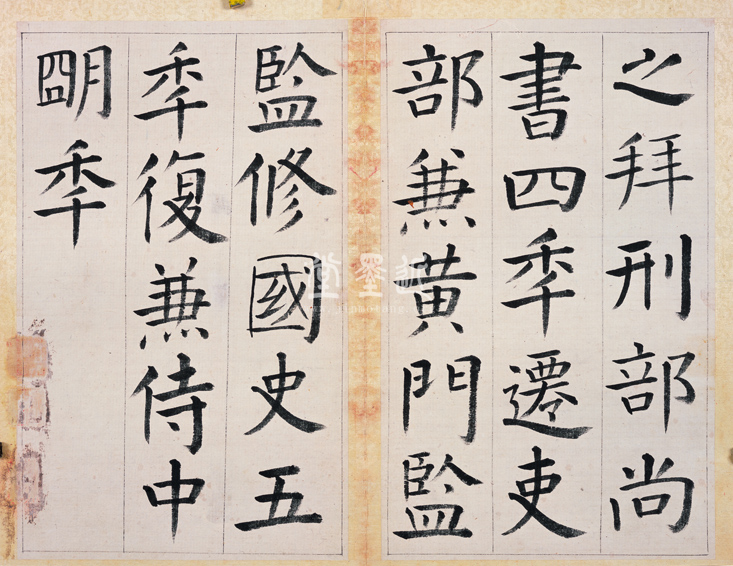 之拜刑部尚
書四秊遷吏
部兼黄門監
監修國史五
秊復兼侍中
朙秊